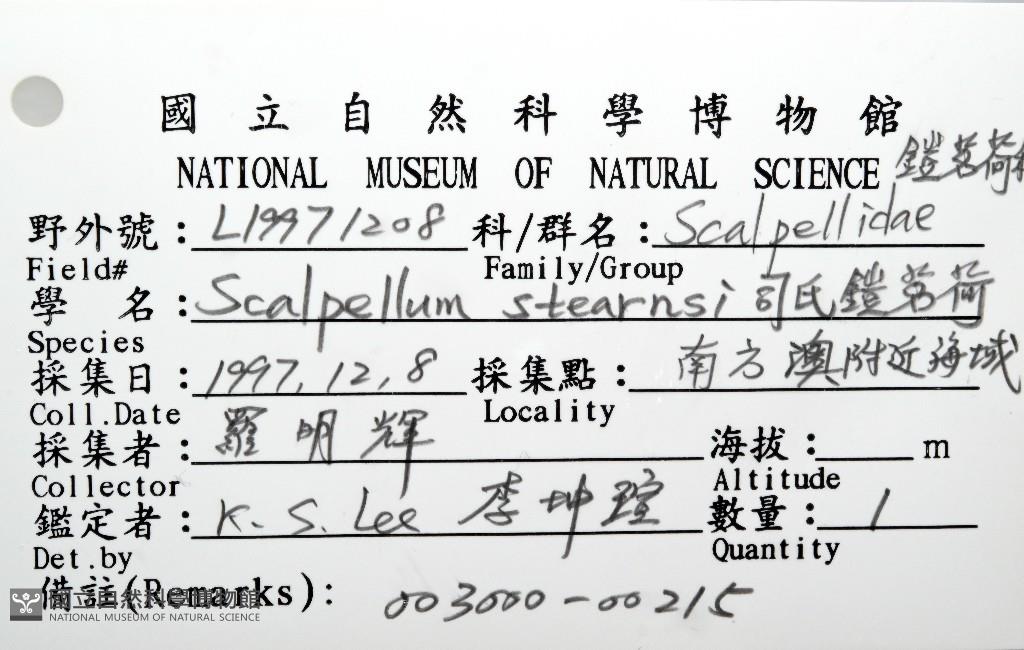 國立自然科學博物館
NATIONAL MUSEUM OF NATURAL SCIENCE 鎧茗荷科
野外號：L19971208 科/群名：Scalpellidae
Field# Family/Group
學 名：Scalpellum stearnsi 司氏鎧茗荷
Species
採集日：1997.12.8 採集點：南方澳附近海域
Coll.Date Locality
採集者：羅明輝 海拔： m
Collector Altitude
鑑定者：K.S. Lee 李坤瑄 數量：1
Det.by Quantity
備註(Remarks)： 003000-00215
國立自然科學博物館
NATIONAL MUSEUM OF NATURAL SCIENCE